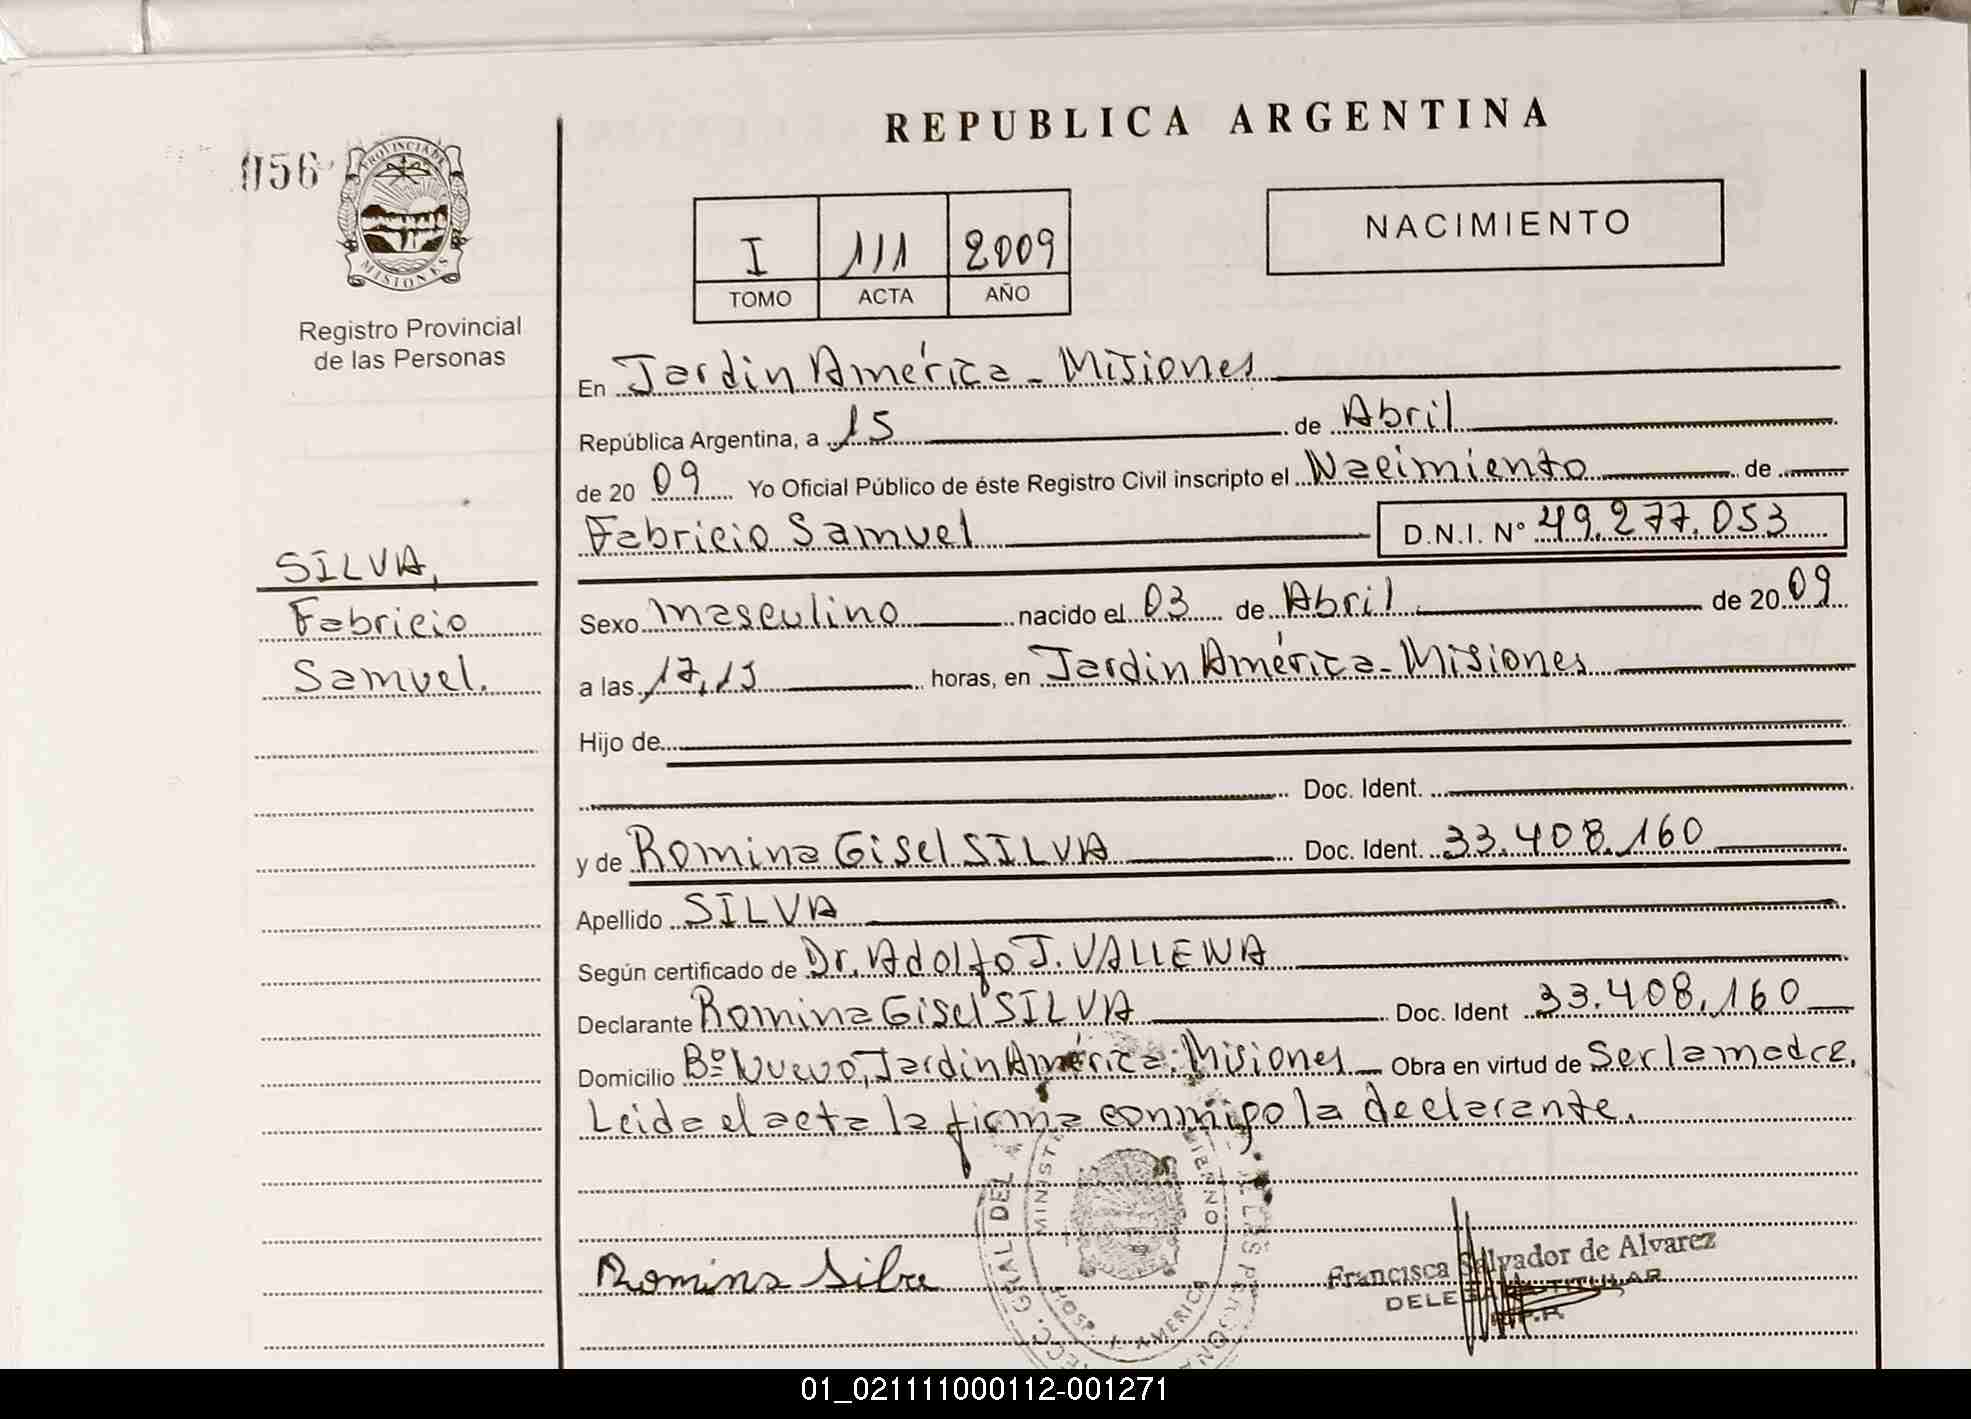 REPUBLICA ARGENTINA
056
PROVINCIA DE
MISIONES
Registro Provincial
de las Personas
I 111 2009
TOMO ACTA AÑO
NACIMIENTO
En Jardin América - Misiones
República Argentina, a 15 de Abril
de 20 09 Yo Oficial Público de éste Registro Civil inscripto el Nacimiento de
Fabricio Samuel D.N.I. Nº 49.277.053
SILVA,
Fabricio
Samuel.
Sexo Masculino nacido el 03 de Abril de 20 09
a las 17,15 horas, en Jardin América - Misiones
Hijo de
Doc. Ident.
y de Romina Gisel SILVA Doc. Ident. 33.408.160
Apellido SILVA
Según certificado de Dr. Adolfo J. VALLENA
Declarante Romina Gisel SILVA Doc. Ident 33.408.160
Domicilio Bº Nuevo, Jardin América. Misiones Obra en virtud de Ser la madre.
Leida el acta la firma conmigo la declarante.
Romina Silva
Francisca Salvador de Alvarez
TITULAR
GRAL DEL
AMERICA
01_021111000112-001271